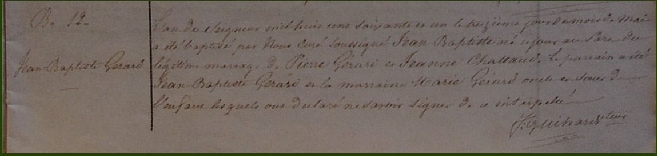 B. 12.
Jean Baptiste Gerard
L'an du Seigneur mil huit cent soixante et un le treizième jour du mois de Mai
a été baptisé par Nous Curé soussigné Jean Baptiste né ce jour au Père du
légitime mariage de Pierre Gérard et Jeanne Chattaud. Le parrain a été
Jean Baptiste Gérard et la marraine Marie Gérard oncle et de
l'enfant lesquels ont déclaré ne savoir signer de ce interpellé